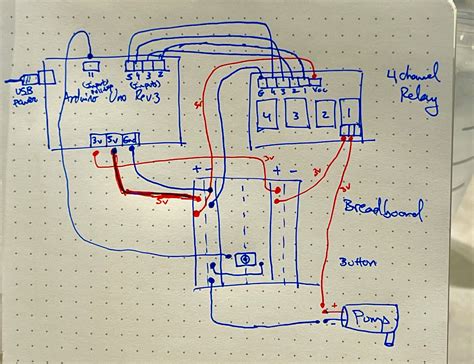 11
(Input)
5 4 3 2
(Inputs)
USB
power
Arduino Uno Rev.3
3v 5v Gnd
G 4 3 2 1 Vcc
4 3 2 1
4 channel
Relay
5v
3v
3v
3v
5v
+ -
+ -
Breadboard
Button
+
Pump
-